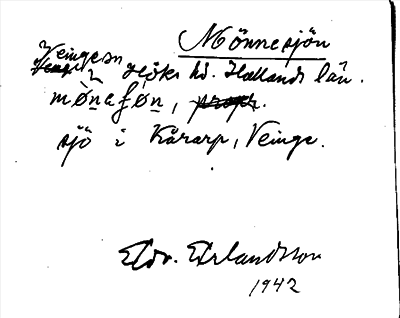 Mönnesjön
Veinge sn Höks hd. Hallands län.
mø̱nɛʃø̱n, propr.
sjö i Kårarp, Veinge.
Edv. Erlandsson
1942